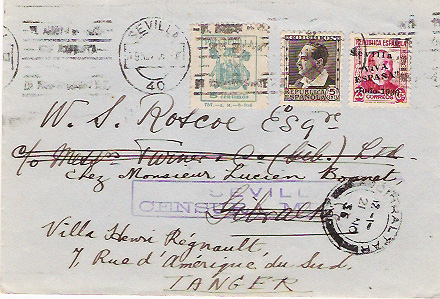 SEVILLA
40
CORREOS
5
REPUBLICA ESPAÑOLA
REPUBLICA ESPAÑOLA
Sevilla
"VIVA
ESPAÑA"
CORREOS
W. S. Roscoe Esqre
c/o Messrs Turner & Co (Gib.) Ltd.
Chez Monsieur Lucien Bonnet
SEVILL
CENSURA MI
Gibraltar
GIBRALTAR
Villa Henri Régnault,
7, Rue d'Amérique du Sud.
TANGER